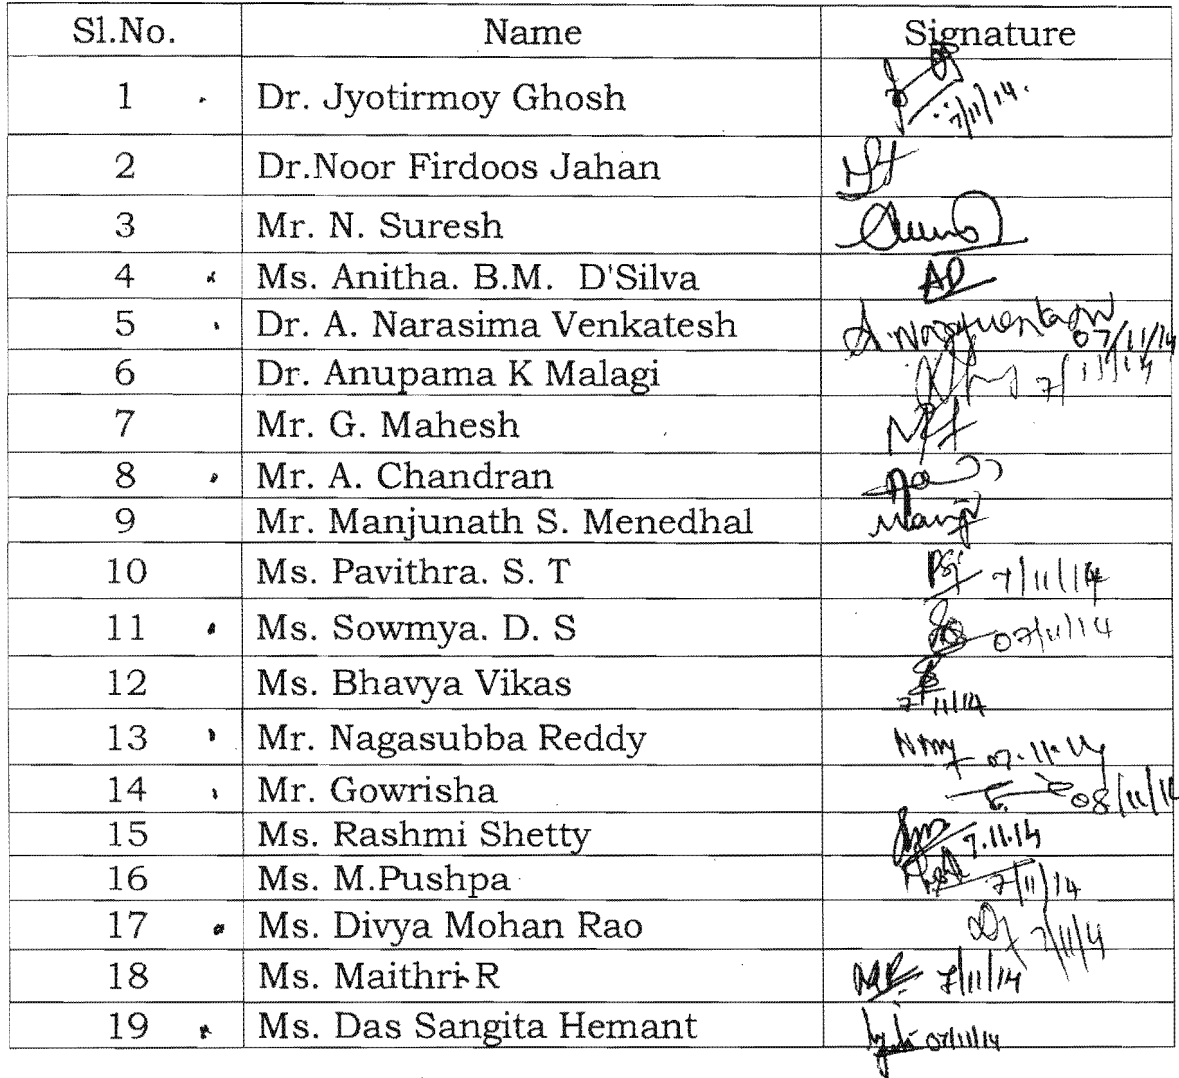 Sl.No. Name Signature
1 Dr. Jyotirmoy Ghosh 7/11/14.
2 Dr.Noor Firdoos Jahan
3 Mr. N. Suresh
4 Ms. Anitha. B.M. D'Silva AD
5 Dr. A. Narasima Venkatesh 07/11/14
6 Dr. Anupama K Malagi 7/11/14
7 Mr. G. Mahesh
8 Mr. A. Chandran
9 Mr. Manjunath S. Menedhal Manj
10 Ms. Pavithra. S. T 7/11/14
11 Ms. Sowmya. D. S 07/11/14
12 Ms. Bhavya Vikas 7/11/14
13 Mr. Nagasubba Reddy 07.11.14
14 Mr. Gowrisha 08/11/14
15 Ms. Rashmi Shetty 7.11.14
16 Ms. M.Pushpa 7/11/14
17 Ms. Divya Mohan Rao 7/11/14
18 Ms. Maithri R 7/11/14
19 Ms. Das Sangita Hemant 07/11/14